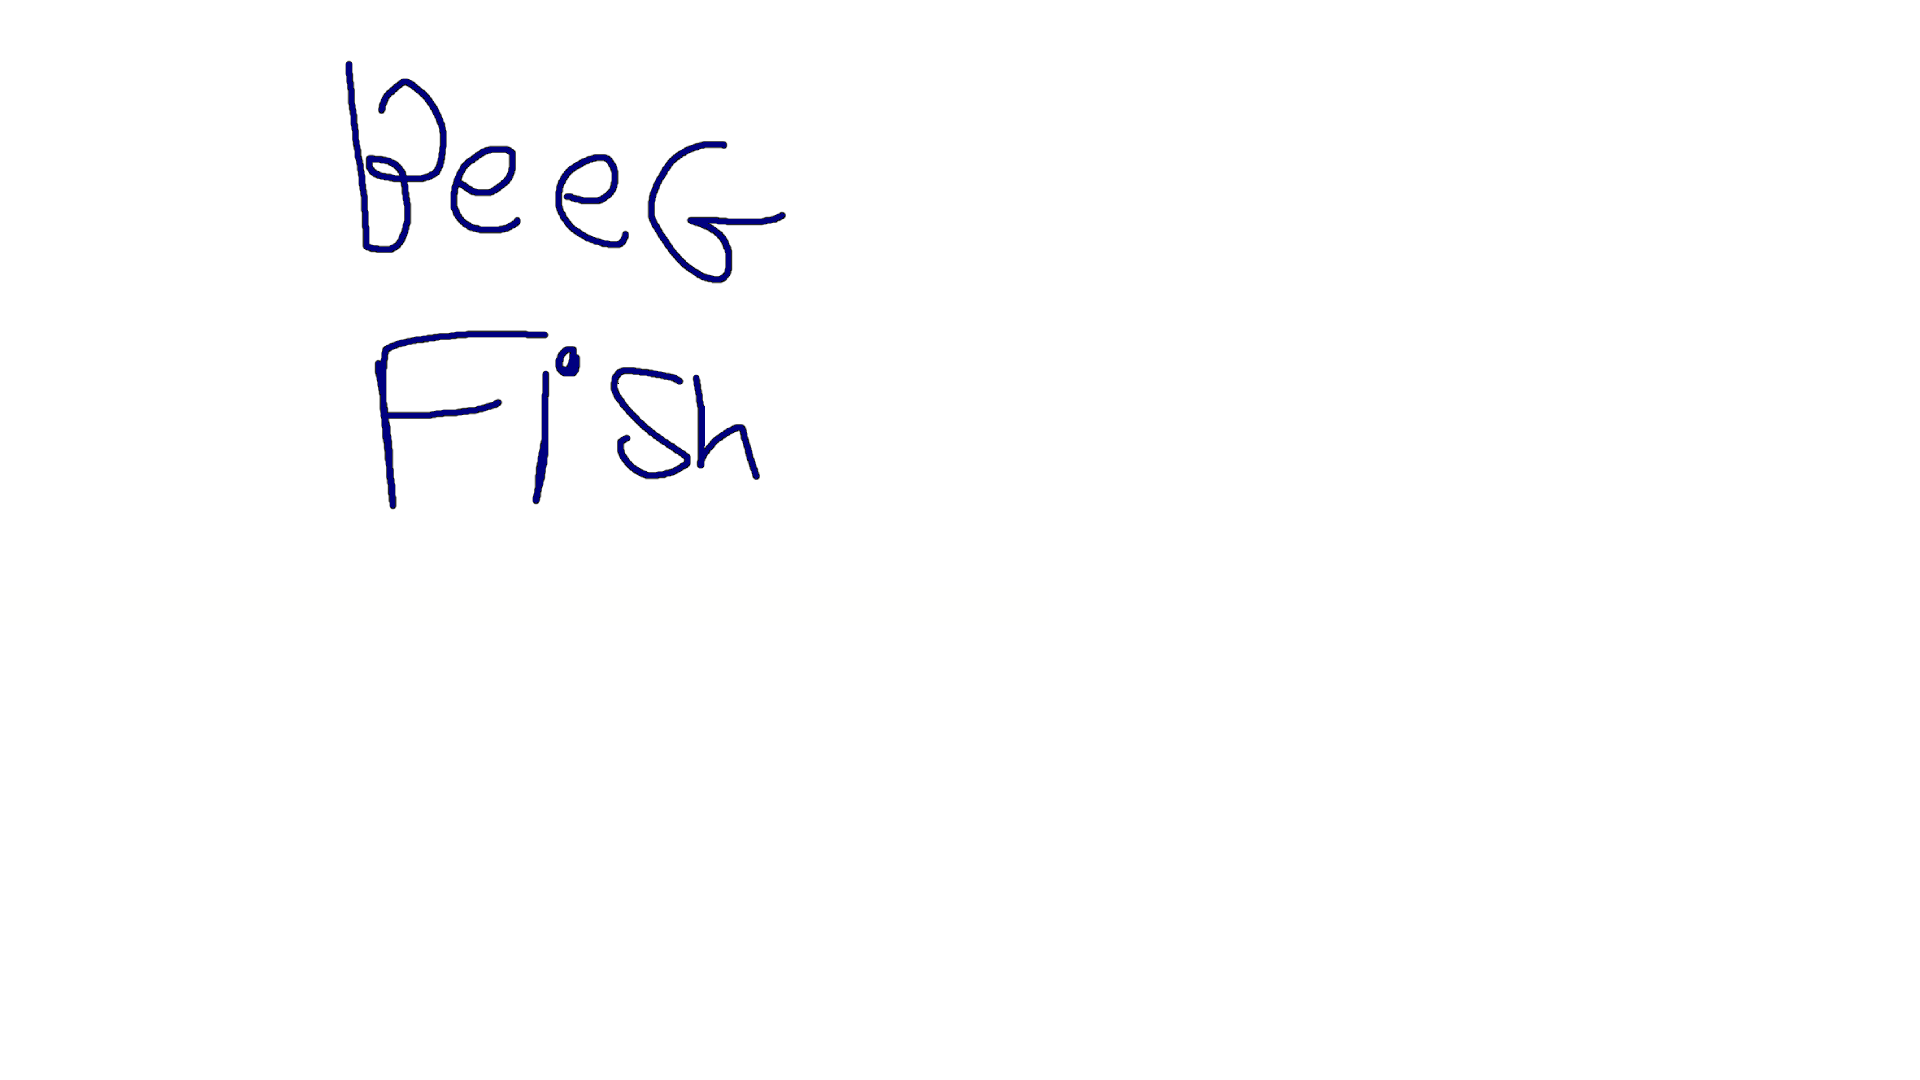 BeeG
Fish